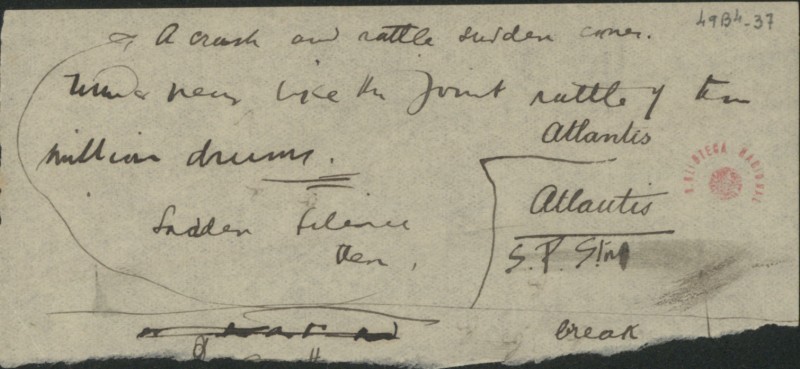 49B4-37
A crash and rattle sudden comes.
near like the joint rattle of ten
million drums.
Atlantis
Atlantis
Sudden silence
then,
S.P.
break
BIBLIOTECA NACIONAL